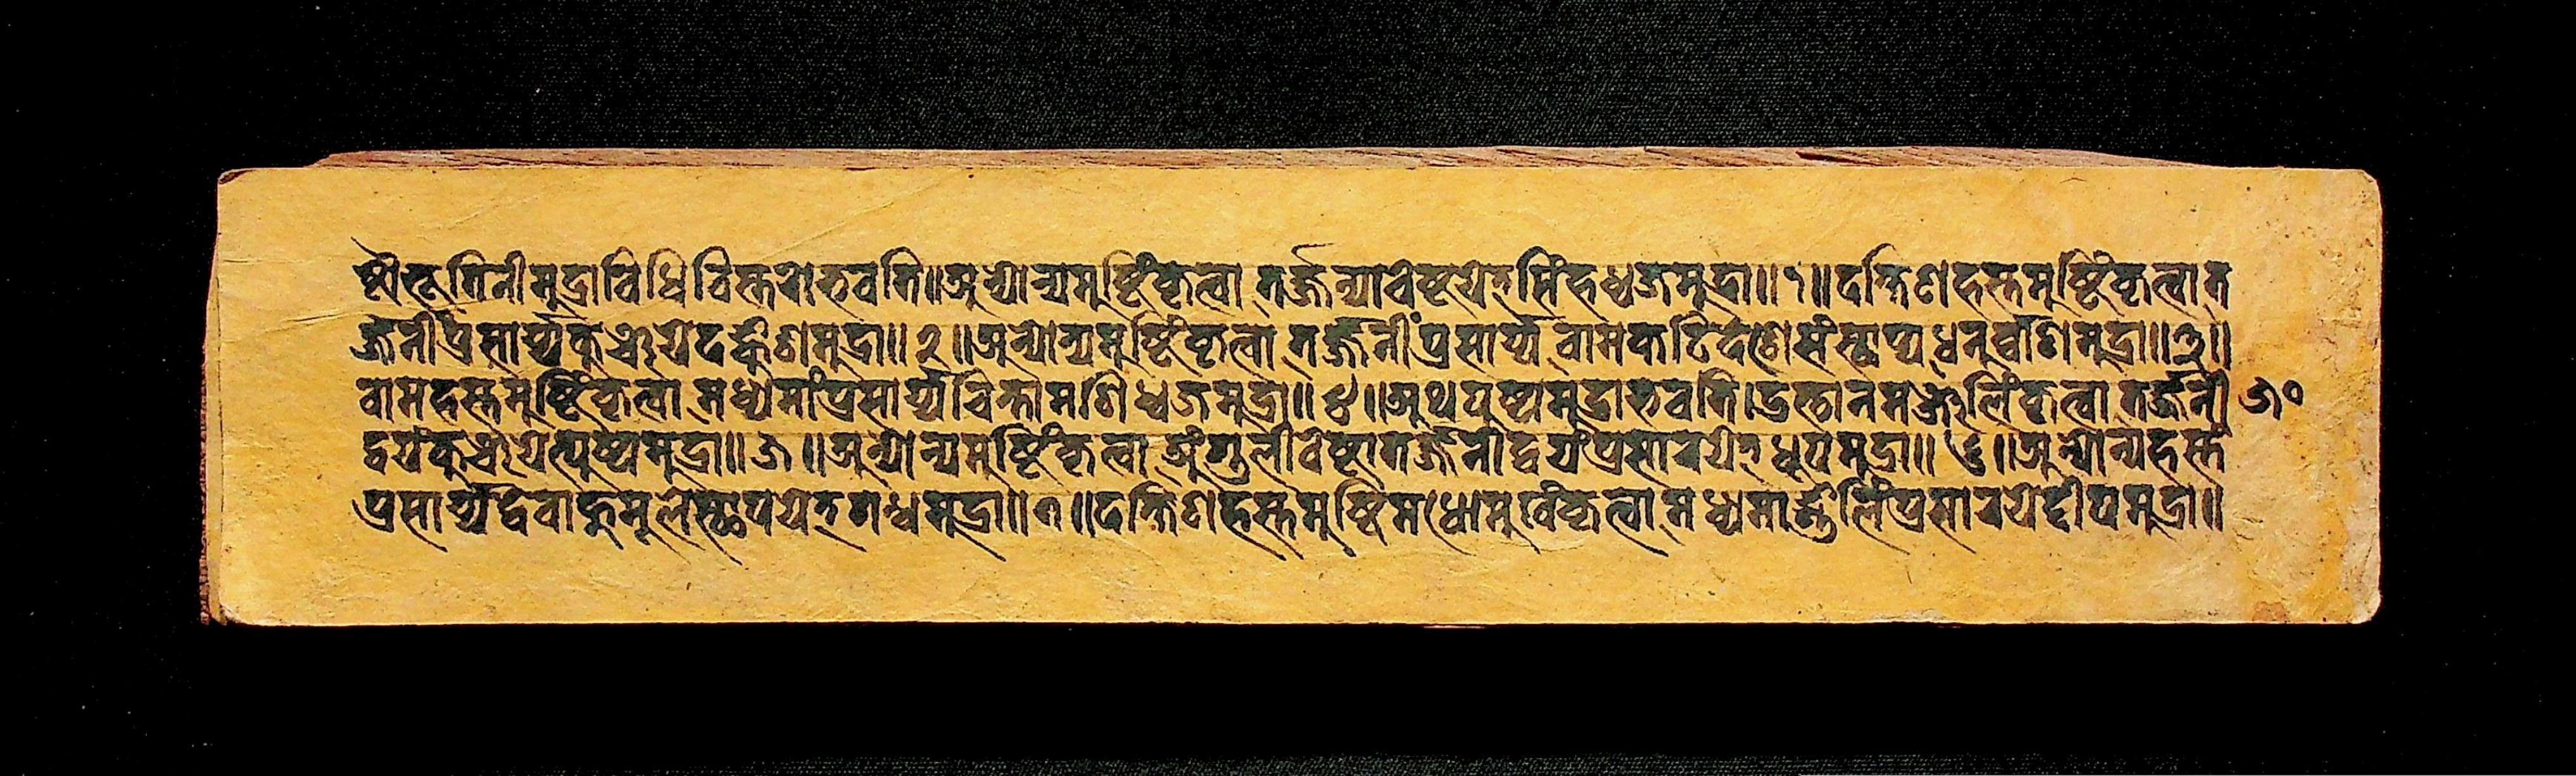 ष्टौ भूतिनीमुद्राविधिविस्तरो भवति॥ अन्योन्यमुष्टिं कृत्वा तर्ज्जन्या वेष्टयेत् सिंहध्वजमुद्रा॥ १॥ दक्षिणहस्तमुष्टिं कृत्वा त
र्ज्जनीं प्रसार्य्य कुञ्चयेदङ्कुशमुद्रा॥ २॥ अन्योन्यमुष्टिं कृत्वा तर्ज्जनीं प्रसार्य्य वामकटिदेशे संस्थाप्य धनुर्व्वाणमुद्रा॥ ३॥
वामहस्तमुष्टिं कृत्वा मध्यमां प्रसार्य्य चिन्तामणिध्वजमुद्रा॥ ४॥ अथ पुष्पमुद्रा भवति। उत्तानमञ्जुलिं कृत्वा तर्ज्जनी ५०
द्वयं कुञ्चयेत्पुष्पमुद्रा॥ ५॥ अन्योन्यमुष्टिं कृत्वा अंगुली वेष्टा तर्ज्जनीद्वयं प्रसारयेत् धूपमुद्रा॥ ६॥ अन्योन्यहस्तं
प्रसार्य्य द्वे वाहुमूले स्थापयेत् गन्धमुद्रा॥ ७॥ दक्षिणहस्तमुष्टिमधोमुखं कृत्वा मध्यमाङ्गुलिं प्रसारयेद्दीपमुद्रा॥